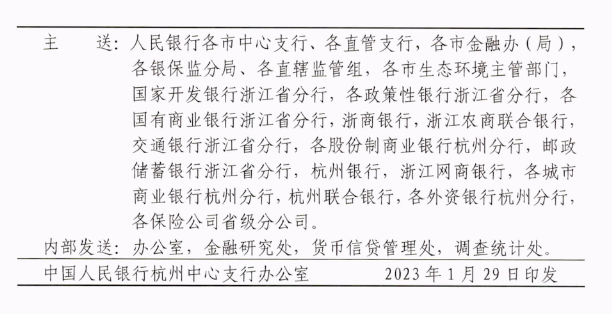 主　　送：人民银行各市中心支行、各直管支行，各市金融办（局），
各银保监分局、各直辖监管组，各市生态环境主管部门，
国家开发银行浙江省分行，各政策性银行浙江省分行，各
国有商业银行浙江省分行，浙商银行，浙江农商联合银行，
交通银行浙江省分行，各股份制商业银行杭州分行，邮政
储蓄银行浙江省分行，杭州银行，浙江网商银行，各城市
商业银行杭州分行，杭州联合银行，各外资银行杭州分行，
各保险公司省级分公司。
内部发送：办公室，金融研究处，货币信贷管理处，调查统计处。
中国人民银行杭州中心支行办公室　　2023年1月29日印发